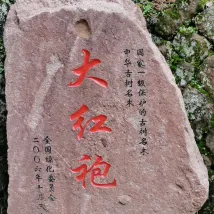 国家一级保护的古树名木
中华古树名木
大红袍
全国绿化委员会
二〇〇六年十月